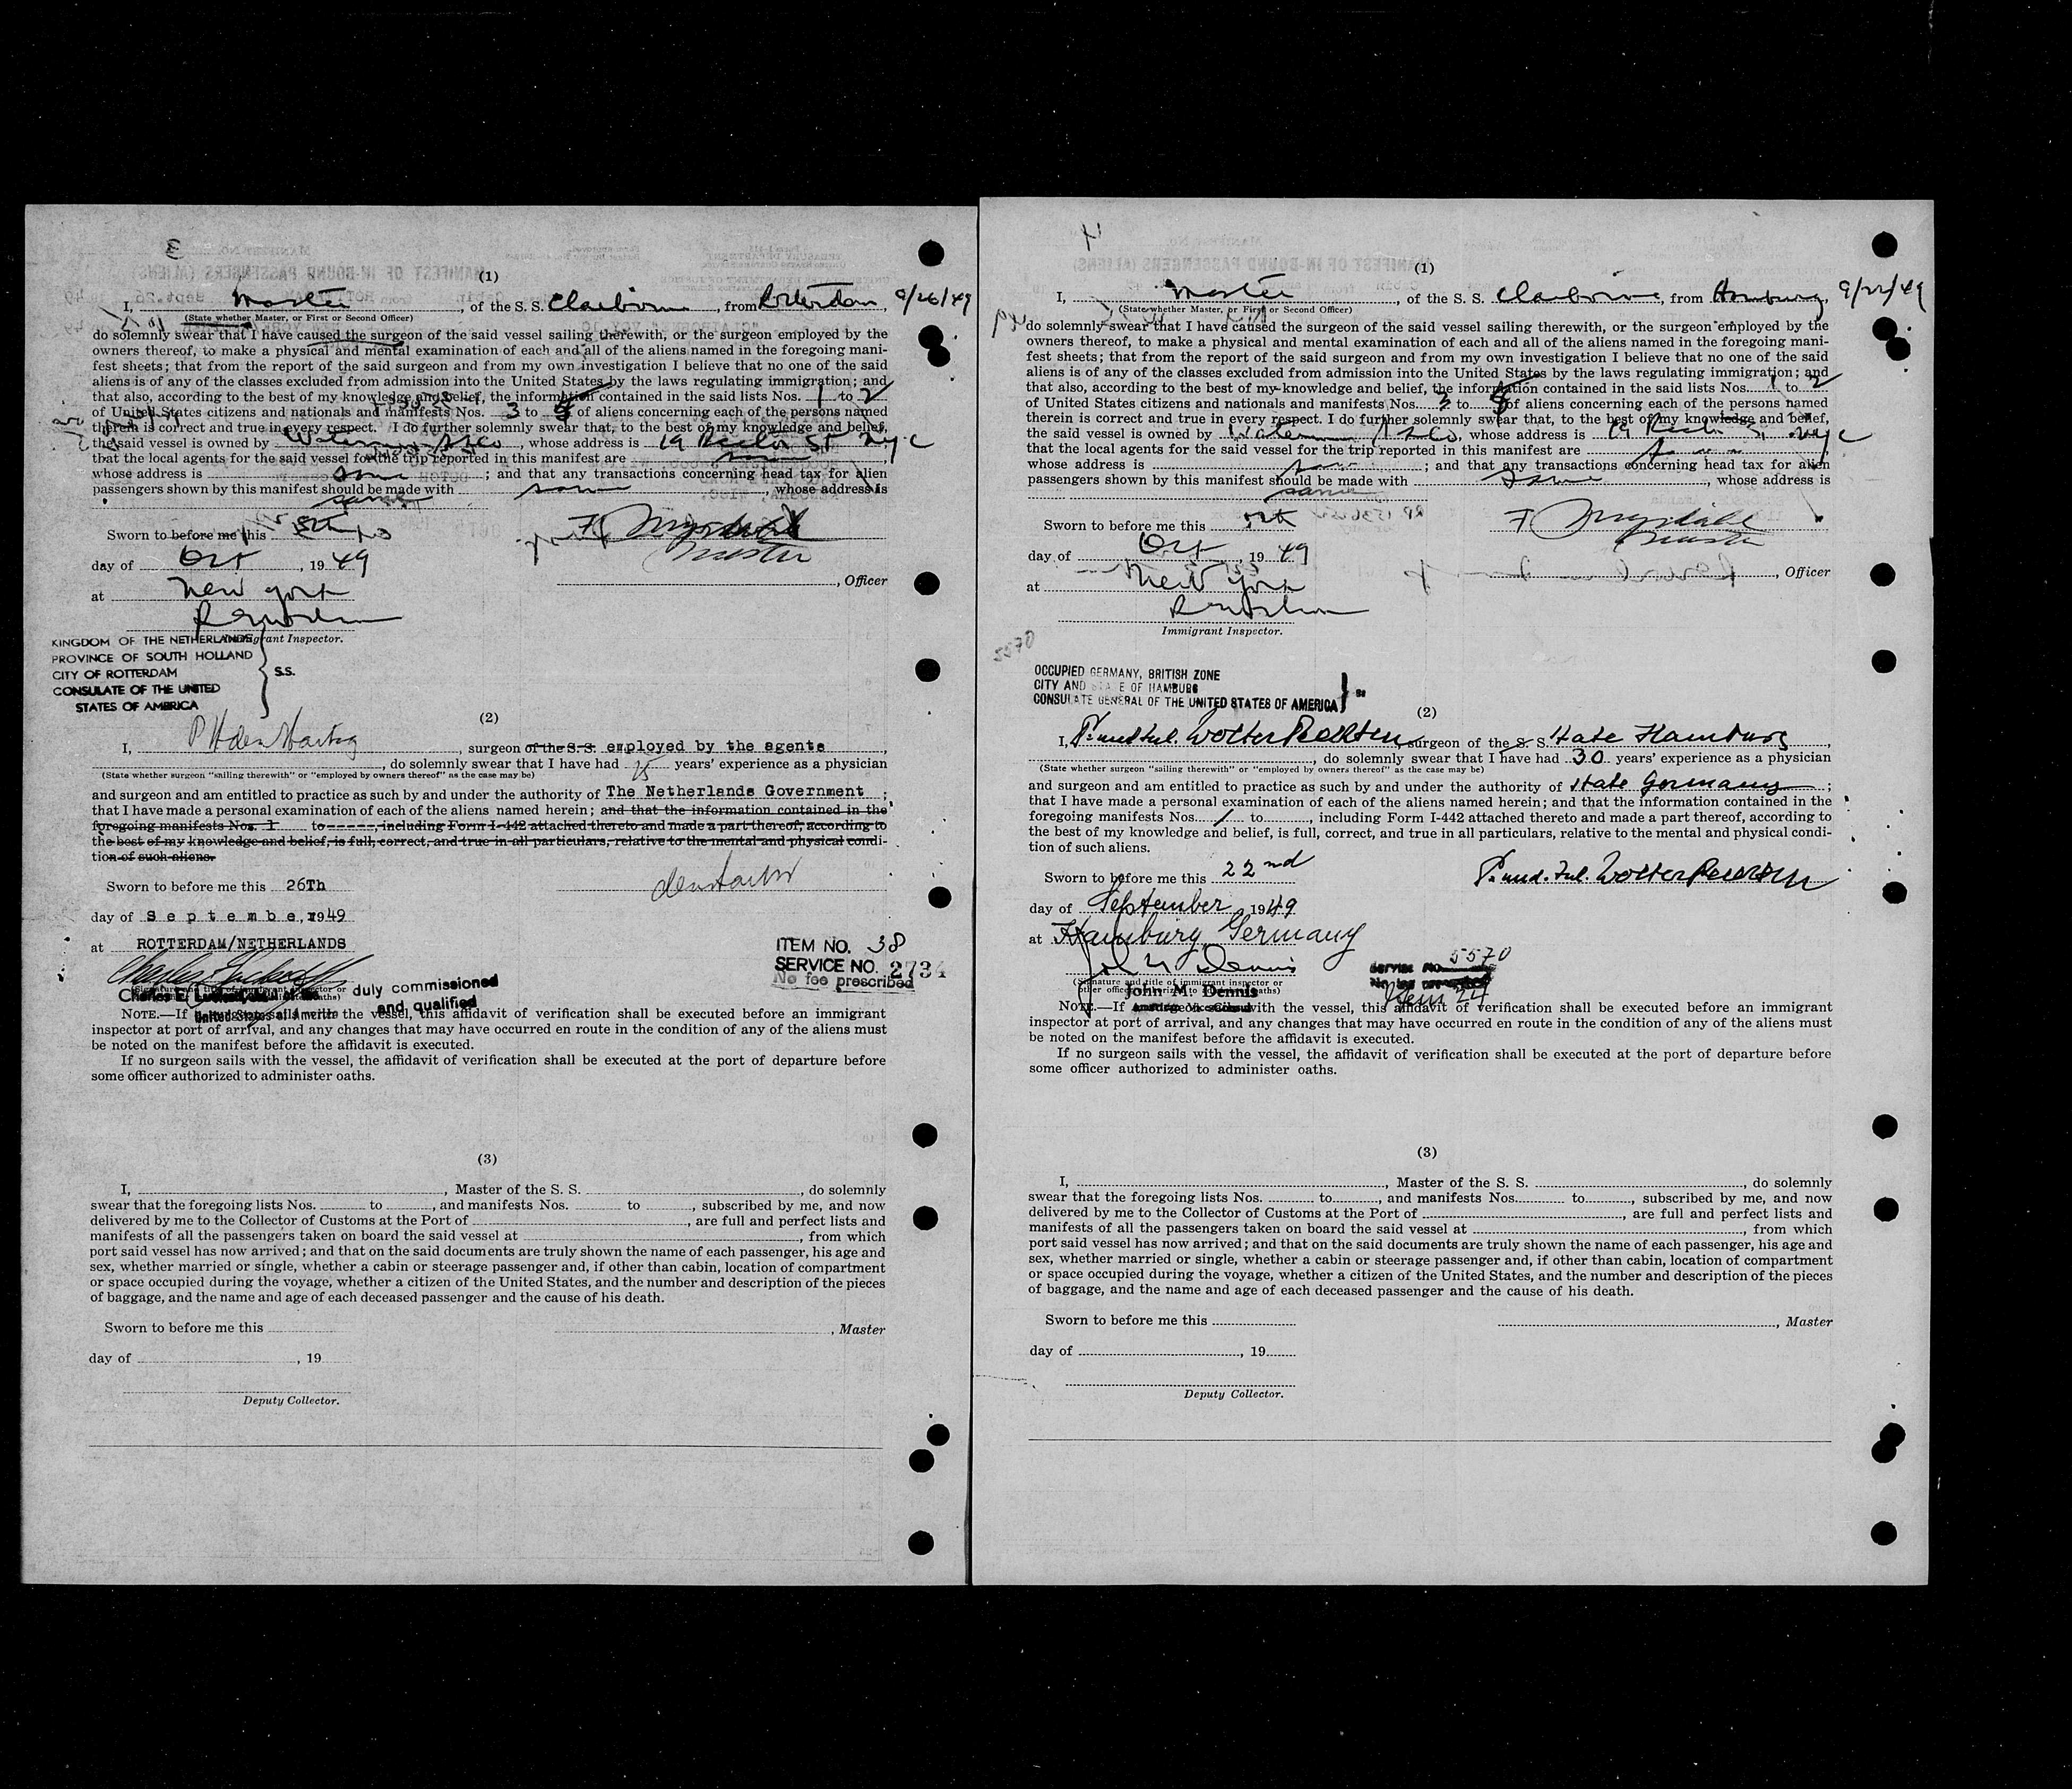 (1)
I, Master, of the S. S. Claiborne, from Rotterdam, 9/26/49
(State whether Master, or First or Second Officer)
do solemnly swear that I have caused the surgeon of the said vessel sailing therewith, or the surgeon employed by the
owners thereof, to make a physical and mental examination of each and all of the aliens named in the foregoing mani-
fest sheets; that from the report of the said surgeon and from my own investigation I believe that no one of the said
aliens is of any of the classes excluded from admission into the United States by the laws regulating immigration; and
that also, according to the best of my knowledge and belief, the information contained in the said lists Nos. 1 to 2
of United States citizens and nationals and manifests Nos. 3 to of aliens concerning each of the persons named
therein is correct and true in every respect. I do further solemnly swear that, to the best of my knowledge and belief,
the said vessel is owned by Waterman SS Co, whose address is 19 Rector St NYC
that the local agents for the said vessel for the trip reported in this manifest are same
whose address is same; and that any transactions concerning head tax for alien
passengers shown by this manifest should be made with same, whose address is
same
Sworn to before me this 5th
day of Oct, 1949
Master
, Officer
at New York
Immigrant Inspector.
KINGDOM OF THE NETHERLANDS
PROVINCE OF SOUTH HOLLAND
CITY OF ROTTERDAM
CONSULATE OF THE UNITED
STATES OF AMERICA
S.S.
(2)
I, P H den Hartog, surgeon of the S. S. employed by the agents,
, do solemnly swear that I have had 15 years' experience as a physician
(State whether surgeon "sailing therewith" or "employed by owners thereof" as the case may be)
and surgeon and am entitled to practice as such by and under the authority of The Netherlands Government;
that I have made a personal examination of each of the aliens named herein; and that the information contained in the
foregoing manifests Nos. 1 to-----, including Form I-442 attached thereto and made a part thereof, according to
the best of my knowledge and belief, is full, correct, and true in all particulars, relative to the mental and physical condi-
tion of such aliens.
Sworn to before me this 26Th
den Hartog
day of September, 1949
at ROTTERDAM/NETHERLANDS
ITEM NO. 38
SERVICE NO. 2734
No fee prescribed
Charles E.
duly commissioned
and qualified
United States of America
NOTE.—If a surgeon sails with the vessel, this affidavit of verification shall be executed before an immigrant
inspector at port of arrival, and any changes that may have occurred en route in the condition of any of the aliens must
be noted on the manifest before the affidavit is executed.
If no surgeon sails with the vessel, the affidavit of verification shall be executed at the port of departure before
some officer authorized to administer oaths.
(3)
I, , Master of the S. S. , do solemnly
swear that the foregoing lists Nos. to , and manifests Nos. to , subscribed by me, and now
delivered by me to the Collector of Customs at the Port of , are full and perfect lists and
manifests of all the passengers taken on board the said vessel at , from which
port said vessel has now arrived; and that on the said documents are truly shown the name of each passenger, his age and
sex, whether married or single, whether a cabin or steerage passenger and, if other than cabin, location of compartment
or space occupied during the voyage, whether a citizen of the United States, and the number and description of the pieces
of baggage, and the name and age of each deceased passenger and the cause of his death.
Sworn to before me this
, Master
day of , 19
Deputy Collector.
(1)
I, Master, of the S. S. Claiborne, from Hamburg, 9/22/49
(State whether Master, or First or Second Officer)
do solemnly swear that I have caused the surgeon of the said vessel sailing therewith, or the surgeon employed by the
owners thereof, to make a physical and mental examination of each and all of the aliens named in the foregoing mani-
fest sheets; that from the report of the said surgeon and from my own investigation I believe that no one of the said
aliens is of any of the classes excluded from admission into the United States by the laws regulating immigration; and
that also, according to the best of my knowledge and belief, the information contained in the said lists Nos. 1 to 2
of United States citizens and nationals and manifests Nos. 3 to of aliens concerning each of the persons named
therein is correct and true in every respect. I do further solemnly swear that, to the best of my knowledge and belief,
the said vessel is owned by Waterman SS Co, whose address is 19 Rector St NYC
that the local agents for the said vessel for the trip reported in this manifest are same
whose address is same; and that any transactions concerning head tax for alien
passengers shown by this manifest should be made with same, whose address is
same
Sworn to before me this 5th
day of Oct, 1949
Master
, Officer
at New York
Immigrant Inspector.
5570
OCCUPIED GERMANY, BRITISH ZONE
CITY AND STATE OF HAMBURG
CONSULATE GENERAL OF THE UNITED STATES OF AMERICA
SS
(2)
I, surgeon of the S. S. State Hamburg,
, do solemnly swear that I have had 30 years' experience as a physician
(State whether surgeon "sailing therewith" or "employed by owners thereof" as the case may be)
and surgeon and am entitled to practice as such by and under the authority of State Germany;
that I have made a personal examination of each of the aliens named herein; and that the information contained in the
foregoing manifests Nos. 1 to , including Form I-442 attached thereto and made a part thereof, according to
the best of my knowledge and belief, is full, correct, and true in all particulars, relative to the mental and physical condi-
tion of such aliens.
Sworn to before me this 22nd
day of September, 1949
at Hamburg, Germany
John M Dennis
5570
Service No.
Item 24
(Signature and title of immigrant inspector or
other officer authorized to administer oaths)
John M. Dennis
NOTE.—If a surgeon sails with the vessel, this affidavit of verification shall be executed before an immigrant
inspector at port of arrival, and any changes that may have occurred en route in the condition of any of the aliens must
be noted on the manifest before the affidavit is executed.
If no surgeon sails with the vessel, the affidavit of verification shall be executed at the port of departure before
some officer authorized to administer oaths.
(3)
I, , Master of the S. S. , do solemnly
swear that the foregoing lists Nos. to , and manifests Nos. to , subscribed by me, and now
delivered by me to the Collector of Customs at the Port of , are full and perfect lists and
manifests of all the passengers taken on board the said vessel at , from which
port said vessel has now arrived; and that on the said documents are truly shown the name of each passenger, his age and
sex, whether married or single, whether a cabin or steerage passenger and, if other than cabin, location of compartment
or space occupied during the voyage, whether a citizen of the United States, and the number and description of the pieces
of baggage, and the name and age of each deceased passenger and the cause of his death.
Sworn to before me this
, Master
day of , 19
Deputy Collector.